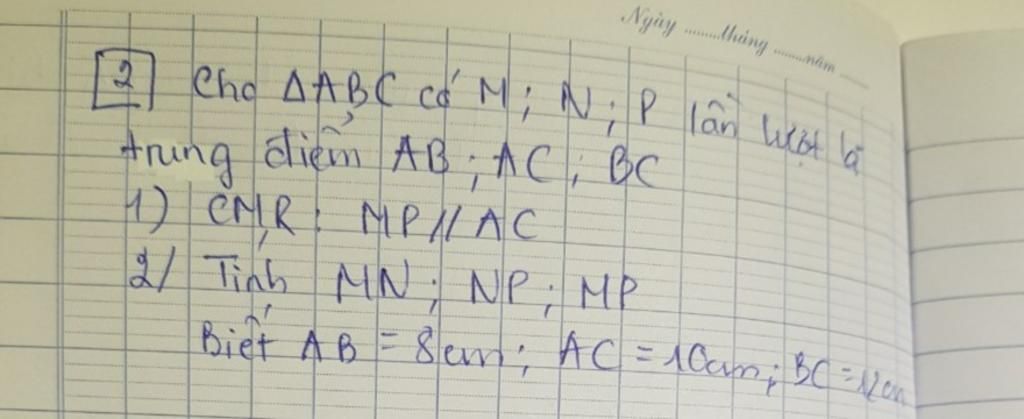 Ngày ........tháng ........năm
2 Cho ΔABC có M ; N ; P lần lượt là
trung điểm AB ; AC ; BC
1) CMR : MP // AC
2/ Tính MN ; NP ; MP
Biết AB = 8cm ; AC = 10cm ; BC = 12cm